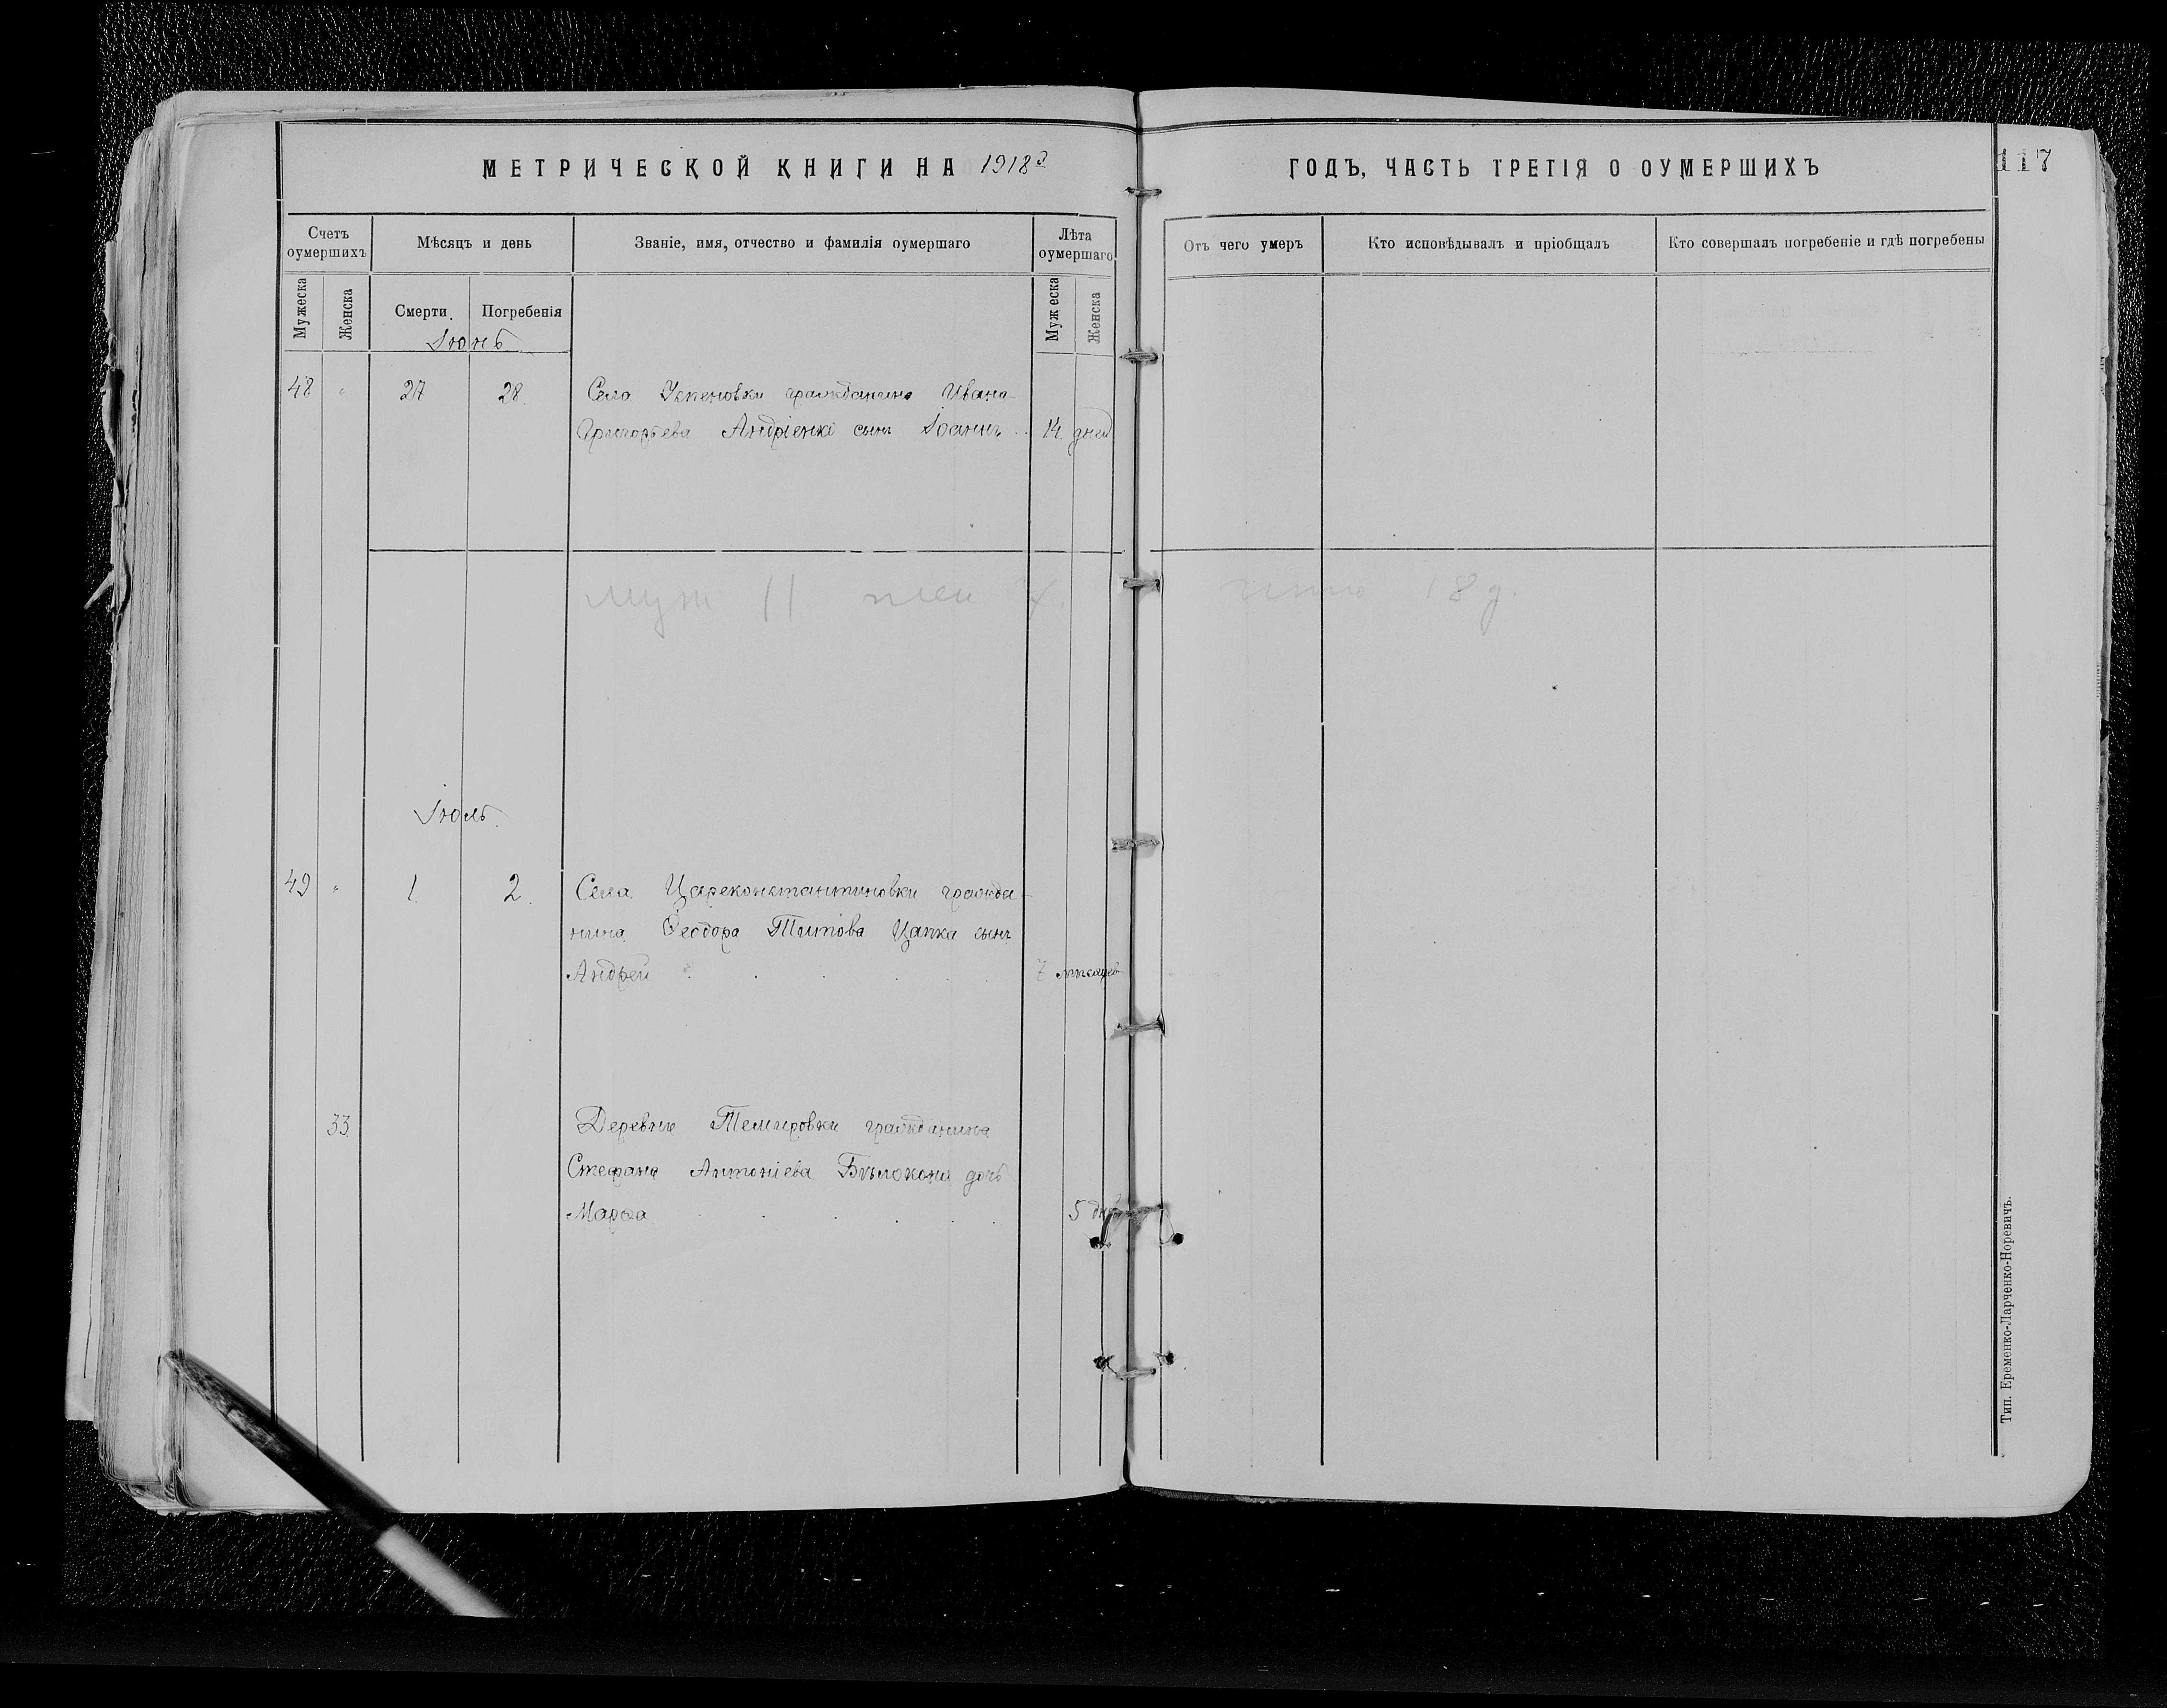 МЕТРИЧЕСКОЙ КНИГИ НА 1918й ГОДЪ, ЧАСТЬ ТРЕТІЯ О ОУМЕРШИХЪ
117
Счетъ оумершихъ
Мѣсяцъ и день
Званіе, имя, отчество и фамилія оумершаго
Лѣта оумершаго
Отъ чего умеръ
Кто исповѣдывалъ и пріобщалъ
Кто совершалъ погребеніе и гдѣ погребены
Мужеска
Женска
Смерти
Погребенія
Мужеска
Женска
Іюнь
48 " 27 28. Села Успеновки гражданина Ивана
Григорьева Андріенко сынъ Іоаннъ 14 дней
муж 11 жен 7. 18 д.
Іюль.
49 " 1 2. Села Цареконстантиновки гражда-
нина Ѳеодора Титова Цапка сынъ
Андрей 7 мѣсяцев
33. Деревни Темировки гражданина
Стефана Антоніева Бѣлоконя дочь
Марѳа 5
Тип. Еременко-Ларченко-Норевичъ.